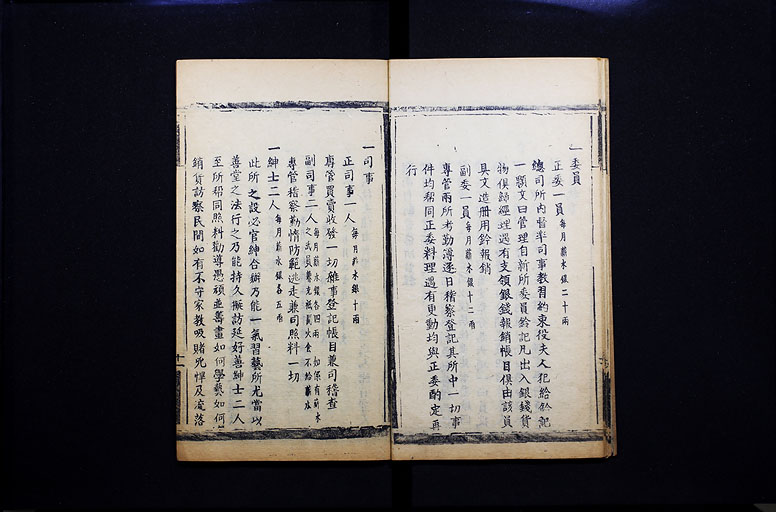 一委員
正委一員每月薪水銀二十兩
總司所內督率司事教習約束役夫人犯給鈐記
一顆文曰管理自新所委員鈐記凡出入銀錢貨
物俱歸經理遇有支領銀錢報銷帳目俱由該員
具文造冊用鈐報銷
副委一員每月薪水銀十二兩
專管兩所考勤簿逐日稽察登記其所中一切事
件均幫同正委料理遇有更動均與正委酌定再
行
一司事
正司事一人每月薪水銀十兩
專管買賣收發一切雜事登記帳目兼司稽查
副司事二人每月薪水銀各四兩如係有薪水之武員兼充祗貼火食不給薪水
專管稽察勤惰防範逃走兼司照料一切
一紳士二人每月薪水銀各五兩
此所之設必官紳合辦乃能一氣習藝所尤當以
善堂之法行之乃能持久擬訪延好善紳士二人
至所幫同照料勸導愚頑並籌畫如何學藝如何
銷貨訪察民間如有不守家教吸賭兇悍及流落